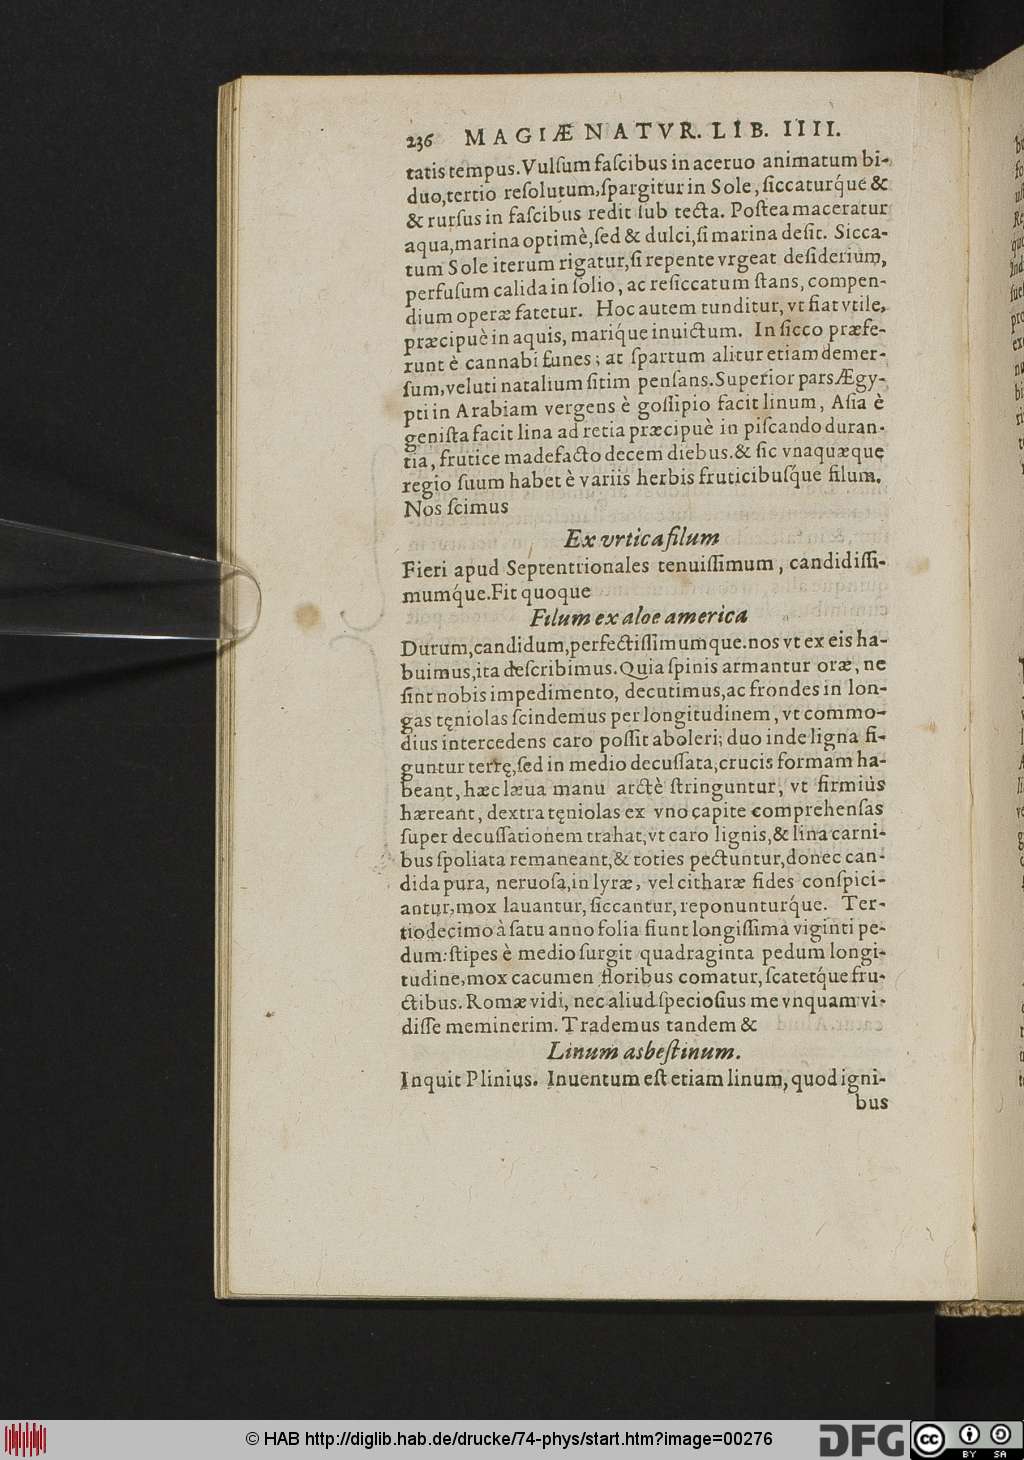 236 MAGIÆ NATVR. LIB. IIII.
tatis tempus. Vulſum faſcibus in aceruo animatum bi-
duo, tertio reſolutum, ſpargitur in Sole, ſiccaturq́ue &
& rurſus in faſcibus redit ſub tecta. Poſtea maceratur
aqua, marina optimè, ſed & dulci, ſi marina deſit. Sicca-
tum Sole iterum rigatur, ſi repente vrgeat deſiderium,
perfuſum calida in ſolio, ac reſiccatum ſtans, compen-
dium operæ fatetur. Hoc autem tunditur, vt fiat vtile,
præcipuè in aquis, mariq́ue inuictum. In ſicco præfe-
runt è cannabi funes; at ſpartum alitur etiam demer-
ſum, veluti natalium ſitim penſans. Superior pars Ægy-
pti in Arabiam vergens è goſſipio facit linum, Aſia è
geniſta facit lina ad retia præcipuè in piſcando duran-
tia, frutice madefacto decem diebus. & ſic vnaquæque
regio ſuum habet è variis herbis fruticibuſq́ue filum.
Nos ſcimus
Ex vrtica filum
Fieri apud Septentrionales tenuiſſimum, candidiſſi-
mumq́ue. Fit quoque
Filum ex aloe america
Durum, candidum, perfectiſſimumque. nos vt ex eis ha-
buimus, ita deſcribimus. Quia ſpinis armantur oræ, ne
ſint nobis impedimento, decutimus, ac frondes in lon-
gas tęniolas ſcindemus per longitudinem, vt commo-
dius intercedens caro poſſit aboleri; duo inde ligna fi-
guntur terrę, ſed in medio decuſſata, crucis formam ha-
beant, hæc læua manu arctè ſtringuntur, vt firmiùs
hæreant, dextra tęniolas ex vno capite comprehenſas
ſuper decuſſationem trahat, vt caro lignis, & lina carni-
bus ſpoliata remaneant, & toties pectuntur, donec can-
dida pura, neruoſa, in lyræ, vel citharæ fides conſpici-
antur, mox lauantur, ſiccantur, reponunturq́ue. Ter-
tiodecimo à ſatu anno folia fiunt longiſſima viginti pe-
dum: ſtipes è medio ſurgit quadraginta pedum longi-
tudine, mox cacumen floribus comatur, ſcatetq́ue fru-
ctibus. Romæ vidi, nec aliud ſpecioſius me vnquam vi-
diſſe meminerim. Trademus tandem &
Linum asbeſtinum.
Inquit Plinius. Inuentum eſt etiam linum, quod igni-
bus
© HAB http://diglib.hab.de/drucke/74-phys/start.htm?image=00276
DFG
cc BY SA